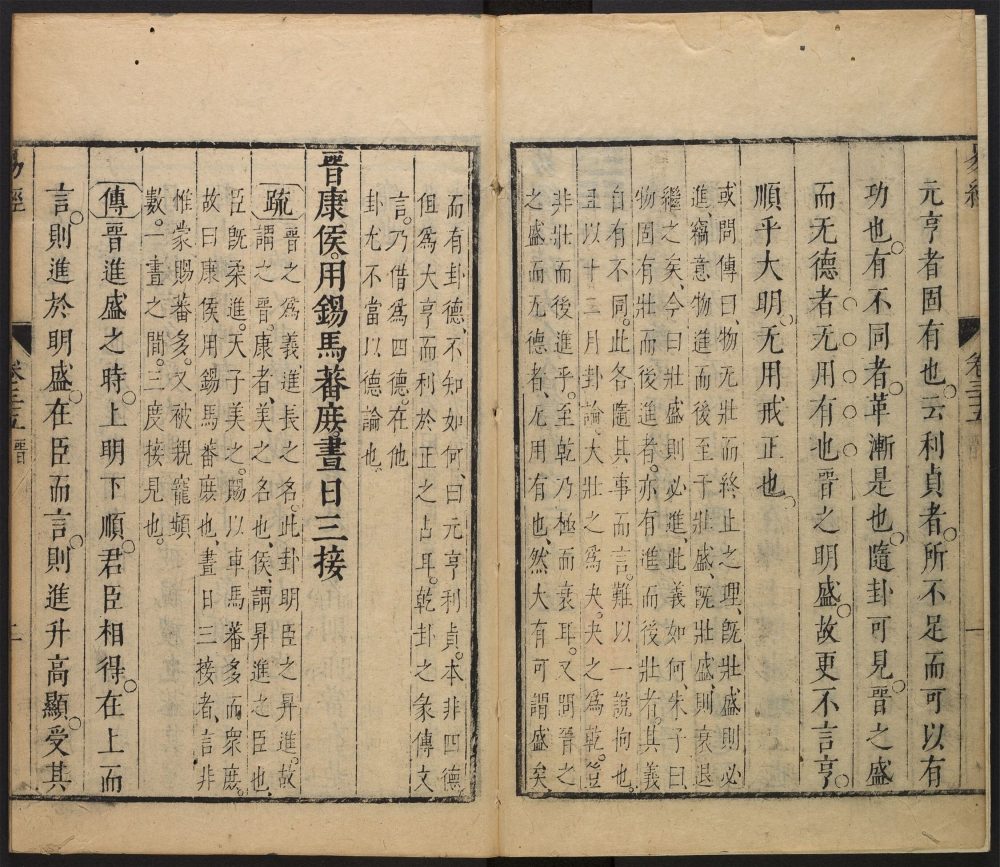 易經
卷三十五
一
元亨者固有也云利貞者所不足而可以有
功也有不同者革漸是也隨卦可見晉之盛
而无德者无用有也晉之明盛故更不言亨
順乎大明无用戒正也
或問傳曰物无壯而終止之理既壯盛則必
進竊意物進而後至于壯盛既壯盛則衰退
繼之矣今曰壯盛則必進此義如何朱子曰
物固有壯而後進者亦有進而後壯者其義
自有不同此各隨其事而言難以一說拘也
且以十二月卦論大壯之爲夬夬之爲乾豈
非壯而後進乎至乾乃極而衰耳又問晉之
之盛而无德者无用有也然大有可謂盛矣
而有卦德不知如何曰元亨利貞本非四德
但爲大亨而利於正之占耳乾卦之象傳文
言乃借爲四德在他
卦尤不當以德論也
晉康侯用錫馬蕃庶晝日三接
疏 晉之爲義進長之名此卦明臣之昇進故
謂之晉康者美之名也侯謂昇進之臣也
臣既柔進天子美之賜以車馬蕃多而眾庶
故曰康侯用錫馬蕃庶也晝日三接者言非
惟蒙賜蕃多又被親寵頻
數一晝之間三度接見也
傳 晉進盛之時上明下順君臣相得在上而
言則進於明盛在臣而言則進升高顯受其
易經
晉
二